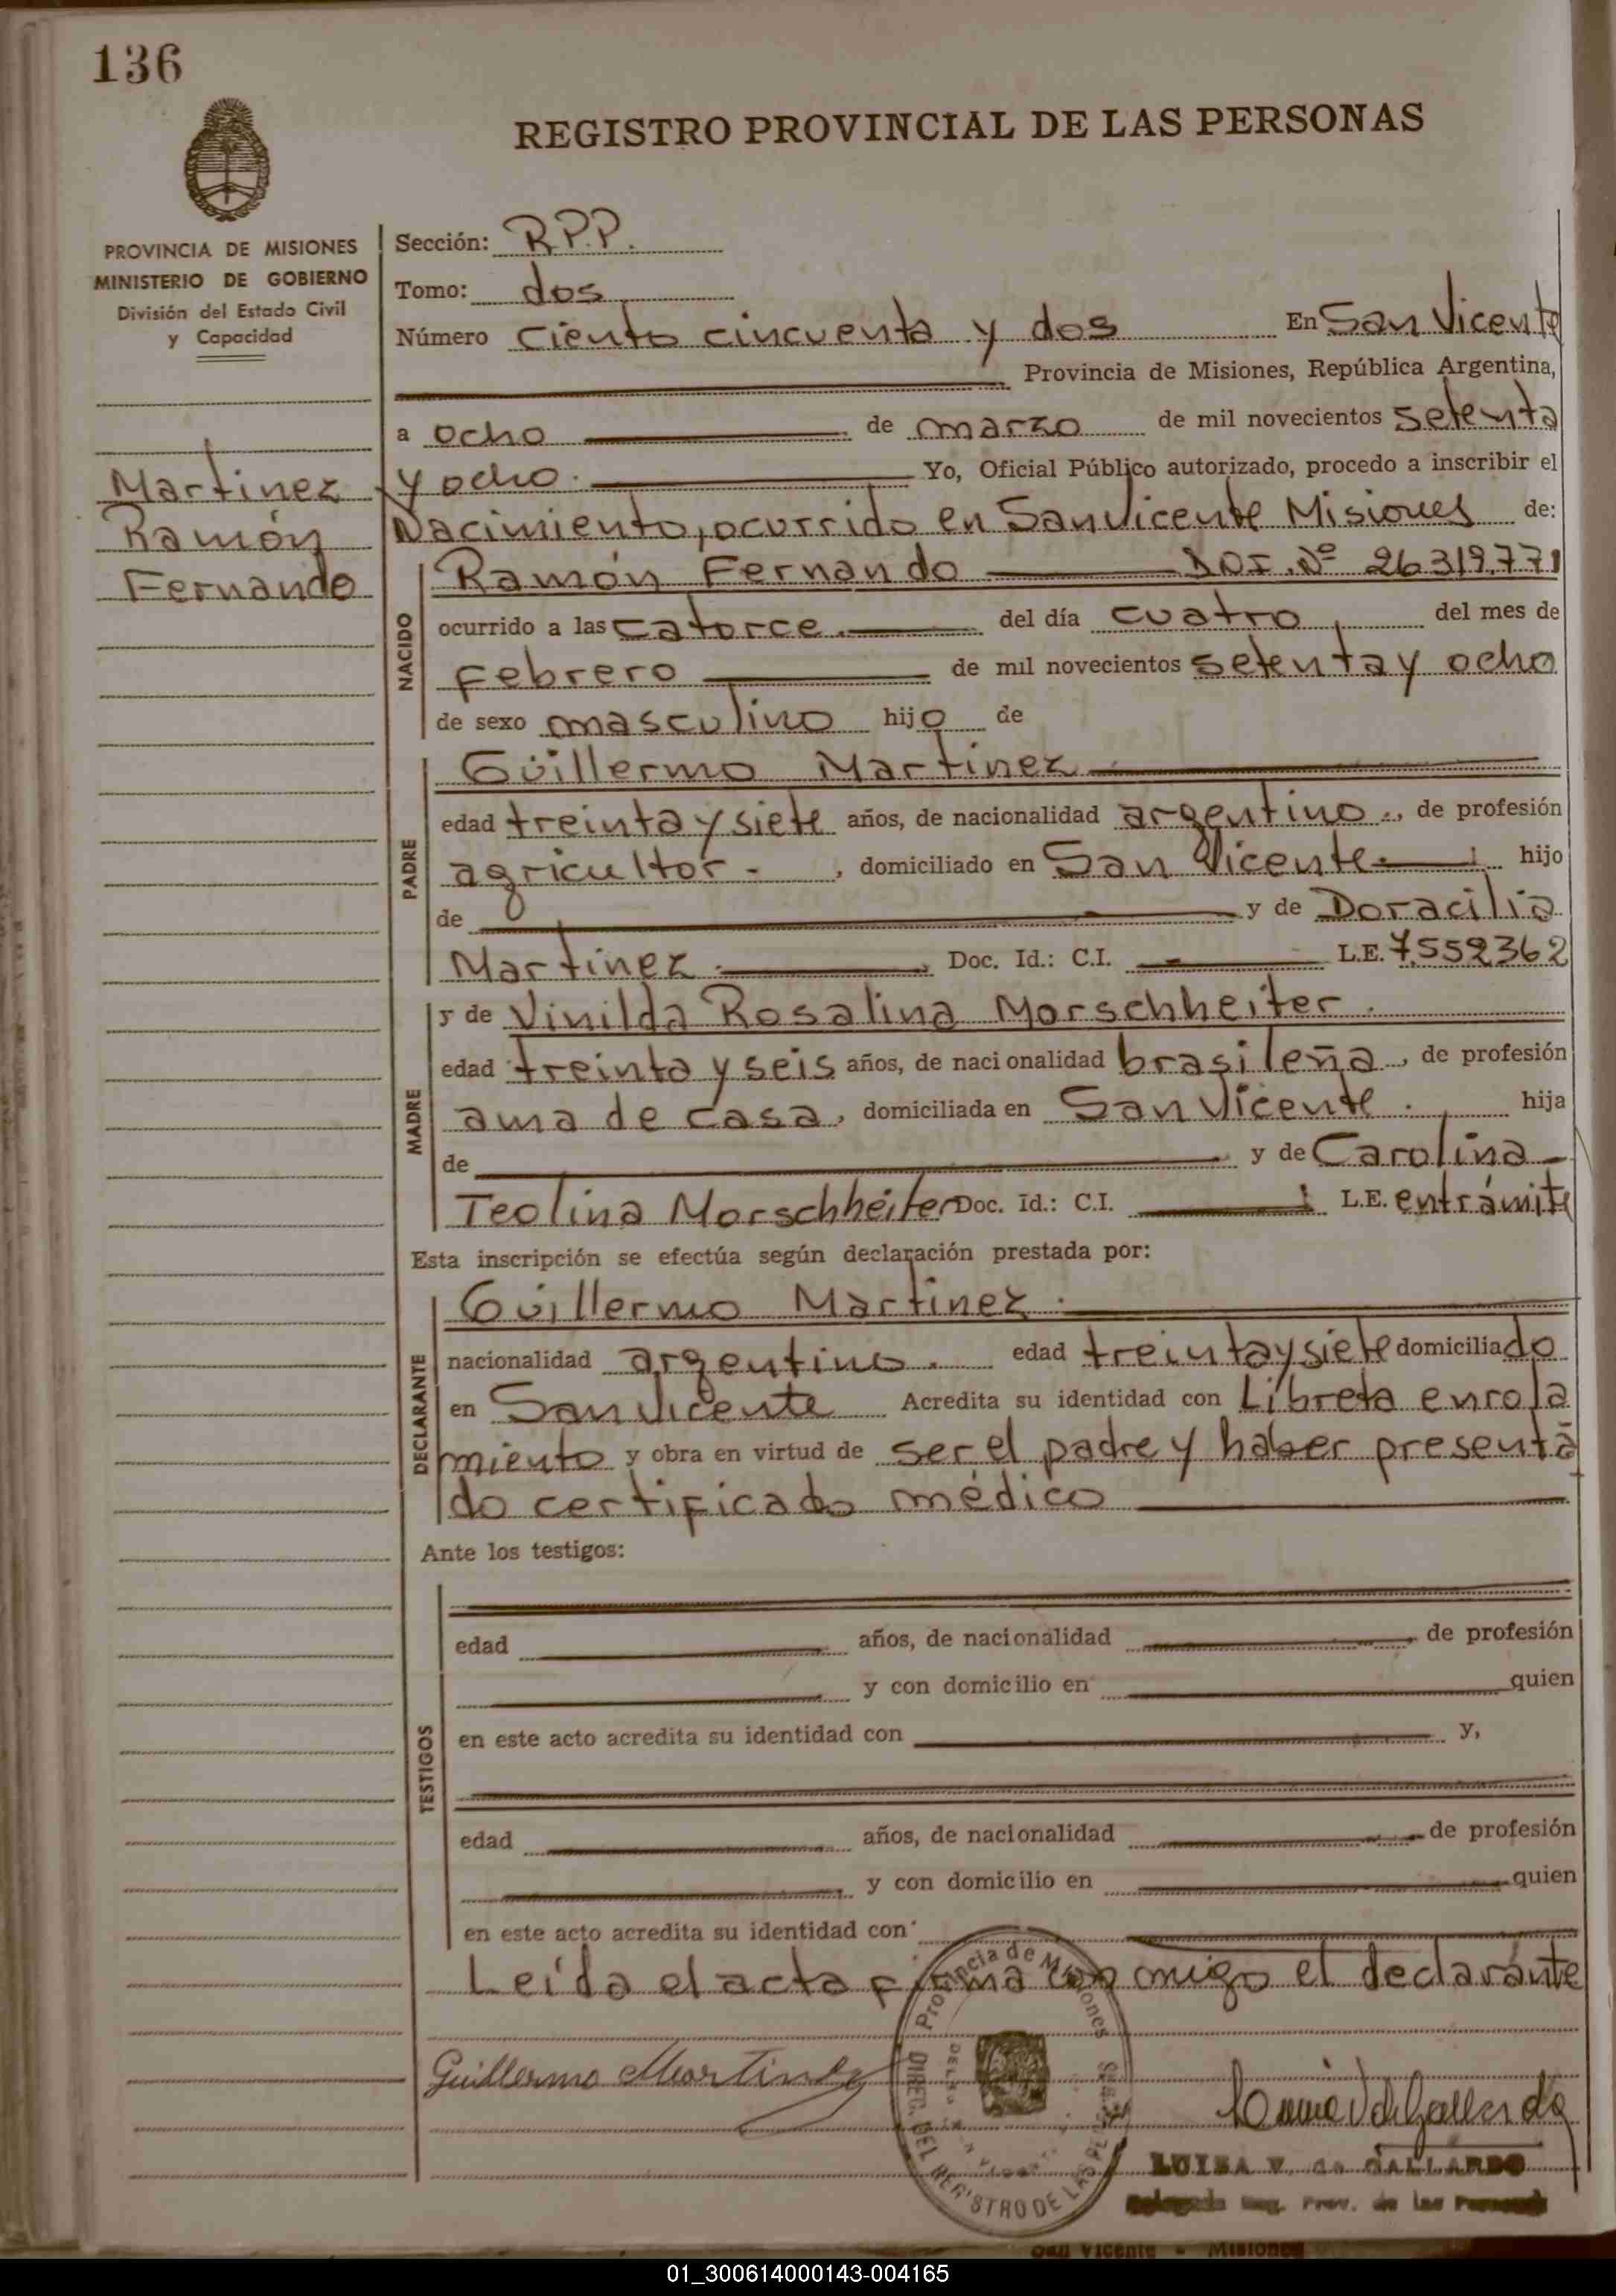 136
REGISTRO PROVINCIAL DE LAS PERSONAS
PROVINCIA DE MISIONES
MINISTERIO DE GOBIERNO
División del Estado Civil
y Capacidad
Martinez
Ramón
Fernando
Sección: R.P.P.
Tomo: dos
Número ciento cincuenta y dos En San Vicente
Provincia de Misiones, República Argentina,
a ocho de marzo de mil novecientos setenta
y ocho. Yo, Oficial Público autorizado, procedo a inscribir el
Nacimiento, ocurrido en San Vicente Misiones de:
NACIDO
Ramón Fernando D.N.I. Nº 26.319.771
ocurrido a las catorce. del día cuatro del mes de
Febrero de mil novecientos setenta y ocho
de sexo masculino hijo de
PADRE
Guillermo Martinez
edad treinta y siete años, de nacionalidad argentino., de profesión
agricultor. , domiciliado en San Vicente hijo
de y de Doracilia
Martinez. , Doc. Id.: C.I. L.E. 7.552362
MADRE
y de Vinilda Rosalina Morschheiter.
edad treinta y seis años, de nacionalidad brasileña, de profesión
ama de casa, domiciliada en San Vicente. hija
de y de Carolina
Teolina Morschheiter Doc. Id.: C.I. L.E. en trámite
Esta inscripción se efectúa según declaración prestada por:
DECLARANTE
Guillermo Martinez.
nacionalidad argentino. edad treinta y siete domiciliado
en San Vicente Acredita su identidad con Libreta enrola
miento y obra en virtud de ser el padre y haber presenta
do certificado médico
Ante los testigos:
TESTIGOS
edad años, de nacionalidad de profesión
y con domicilio en quien
en este acto acredita su identidad con y,
edad años, de nacionalidad de profesión
y con domicilio en quien
en este acto acredita su identidad con
Leída el acta firma con migo el declarante
Guillermo Martinez
Provincia de Misiones
DIREC. DEL REGISTRO DE LAS
LUISA V. de GALLARDO
Delegada Reg. Prov. de las Personas
San Vicente - Misiones
01_300614000143-004165